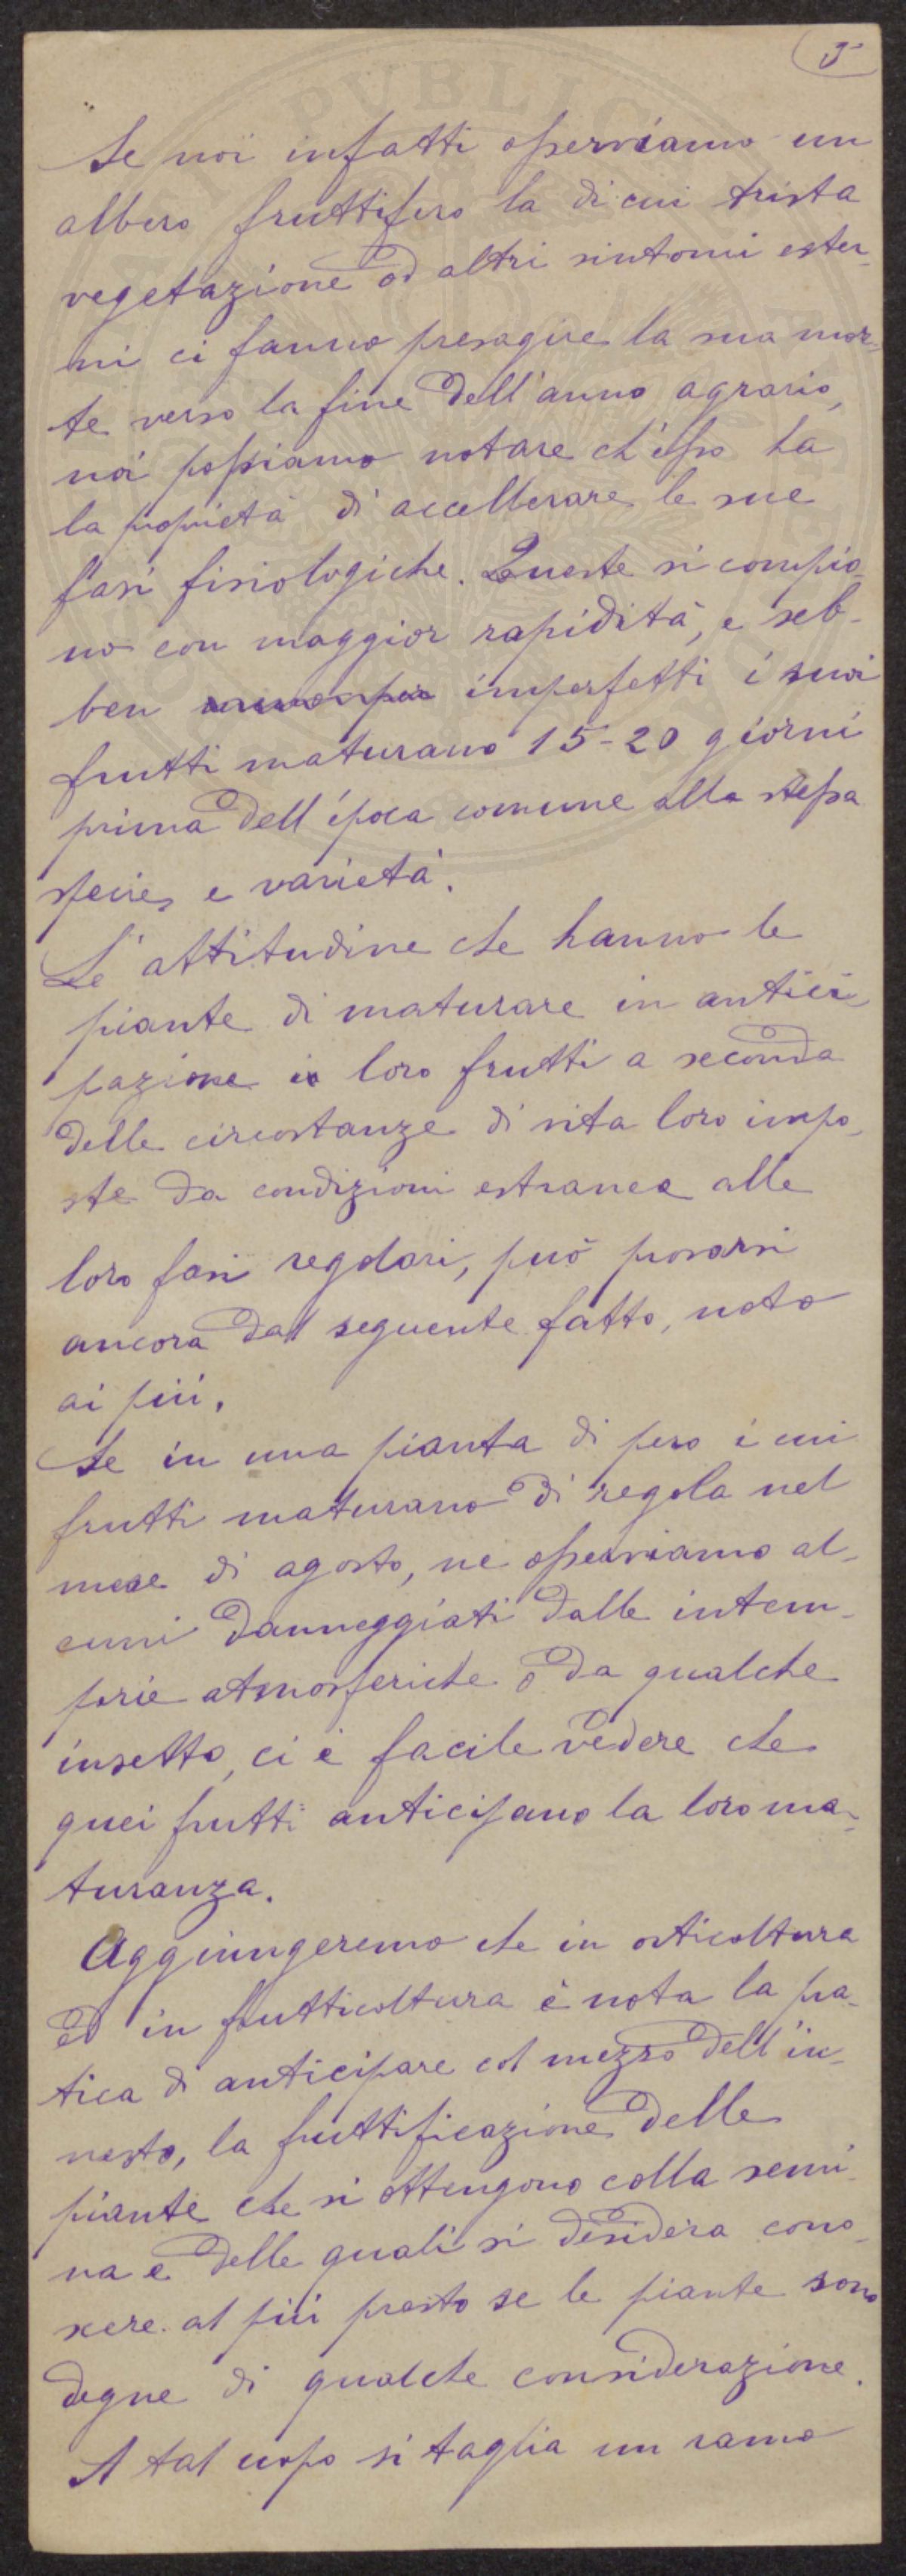 5
Se noi infatti osserviamo un
albero fruttifero la di cui trista
vegetazione od altri sintomi ester-
ni ci fanno presagire la sua mor-
te verso la fine dell'anno agrario,
noi possiamo notare ch'esso ha
la proprietà di accellerare le sue
fasi fisiologiche. Queste si compio-
no con maggior rapidità, e seb-
ben imperfetti i suoi
frutti maturano 15-20 giorni
prima dell'época comune alla stessa
specie, e varietà.
L'attitudine che hanno le
piante di maturare in antici-
pazione i loro frutti a seconda
delle circostanze di vita loro impo-
ste da condizioni estranee alle
loro fasi regolari, può provarsi
ancora dal seguente fatto, noto
ai più.
Se in una pianta di pero i cui
frutti maturano di regola nel
mese di agosto, ne osserviamo al-
cuni danneggiati dalle intem-
perie atmosferiche o da qualche
insetto, ci è facile vedere che
quei frutti anticipano la loro ma-
turanza.
Aggiungeremo che in orticoltura
ed in frutticoltura è nota la pra-
tica di anticipare col mezzo dell'in-
nesto, la fruttificazione delle
piante che si ottengono colla semi-
na e delle quali si desidera cono-
scere al più presto se le piante sono
degne di qualche considerazione.
A tal uopo si taglia un ramo